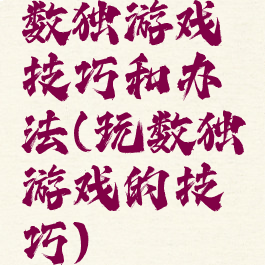 数独游戏
技巧和办
法(玩数独
游戏的技
巧)